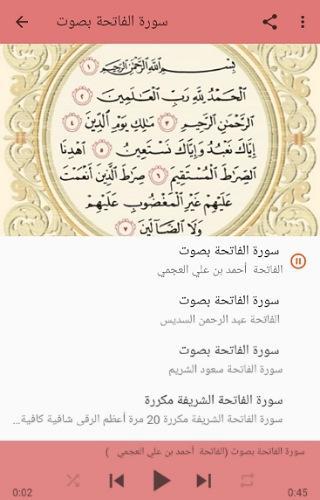 سورة الفاتحة بصوت
بِسْمِ اللَّهِ الرَّحْمَٰنِ الرَّحِيمِ ١
الْحَمْدُ لِلَّهِ رَبِّ الْعَالَمِينَ ٢
الرَّحْمَٰنِ الرَّحِيمِ ٣ مَالِكِ يَوْمِ الدِّينِ ٤
إِيَّاكَ نَعْبُدُ وَإِيَّاكَ نَسْتَعِينُ ٥ اهْدِنَا
الصِّرَاطَ الْمُسْتَقِيمَ ٦ صِرَاطَ الَّذِينَ أَنْعَمْتَ
عَلَيْهِمْ غَيْرِ الْمَغْضُوبِ عَلَيْهِمْ
وَلَا الضَّالِّينَ ٧
سورة الفاتحة بصوت
الفاتحة أحمد بن علي العجمي
سورة الفاتحة بصوت
الفاتحة عبد الرحمن السديس
سورة الفاتحة بصوت
سورة الفاتحة سعود الشريم
سورة الفاتحة الشريفة مكررة
سورة الفاتحة الشريفة مكررة 20 مرة أعظم الرقى شافية كافية...
سورة الفاتحة بصوت (الفاتحة أحمد بن علي العجمي )
0:02
0:45